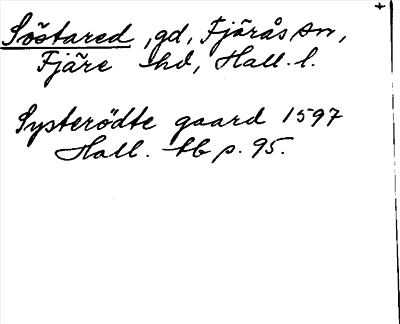 Söstared, gd, Fjärås sn,
Fjäre hd, Hall. l.
Systerödte gaard 1597
Hall. tb p. 95.